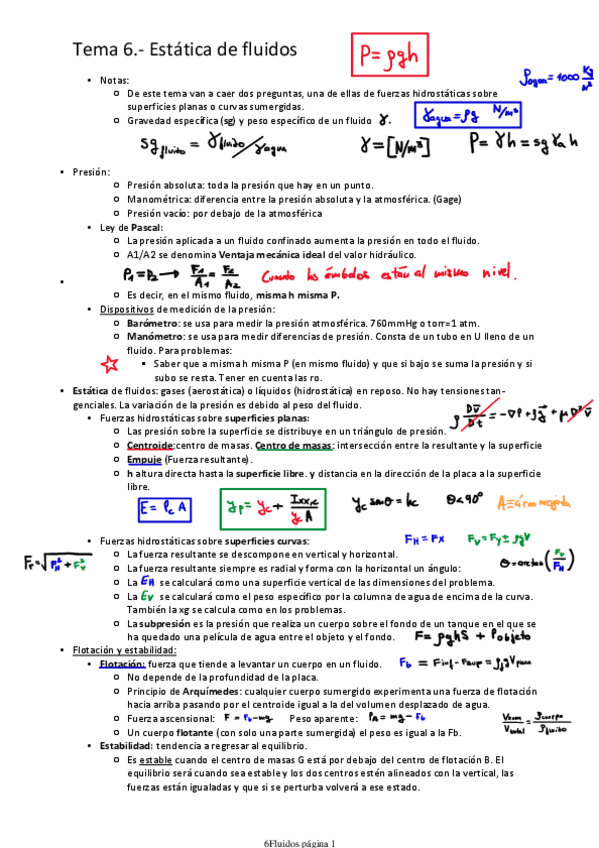 Tema 6.- Estática de fluidos
P = ρgh
• Notas:
ρagua = 1000 Kg/m³
o De este tema van a caer dos preguntas, una de ellas de fuerzas hidrostáticas sobre
superficies planas o curvas sumergidas.
o Gravedad específica (sg) y peso específico de un fluido γ.
γagua = ρg N/m³
sg fluido = γfluido/γagua γ = [N/m³] P = γh = sg γa h
• Presión:
o Presión absoluta: toda la presión que hay en un punto.
o Manométrica: diferencia entre la presión absoluta y la atmosférica. (Gage)
o Presión vacío: por debajo de la atmosférica
• Ley de Pascal:
o La presión aplicada a un fluido confinado aumenta la presión en todo el fluido.
o A1/A2 se denomina Ventaja mecánica ideal del valor hidráulico.
P1 = P2 → F1/A1 = F2/A2 Cuando los émbolos están al mismo nivel.
•
o Es decir, en el mismo fluido, misma h misma P.
• Dispositivos de medición de la presión:
o Barómetro: se usa para medir la presión atmosférica. 760mmHg o torr=1 atm.
o Manómetro: se usa para medir diferencias de presión. Consta de un tubo en U lleno de un
fluido. Para problemas:
▪ Saber que a misma h misma P (en mismo fluido) y que si bajo se suma la presión y si
subo se resta. Tener en cuenta las ro.
• Estática de fluidos: gases (aerostática) o líquidos (hidrostática) en reposo. No hay tensiones tan-
genciales. La variación de la presión es debido al peso del fluido.
ρ Dv/Dt = -∇P + ρg + μ∇²v
• Fuerzas hidrostáticas sobre superficies planas:
o Las presión sobre la superficie se distribuye en un triángulo de presión.
o Centroide:centro de masas. Centro de masas: intersección entre la resultante y la superficie
o Empuje (Fuerza resultante).
o h altura directa hasta la superficie libre. y distancia en la dirección de la placa a la superficie
libre.
E = Pc A yp = yc + Ixx,c/yc A yc senθ = hc θ<90° A = área mojada
• Fuerzas hidrostáticas sobre superficies curvas: FH = Px FV = Fy ± ρgV
o La fuerza resultante se descompone en vertical y horizontal.
Fr = √FH² + FV²
o La fuerza resultante siempre es radial y forma con la horizontal un ángulo: θ = arctan(FV/FH)
o La EH se calculará como una superficie vertical de las dimensiones del problema.
o La EV se calculará como el peso específico por la columna de agua de encima de la curva.
También la xg se calcula como en los problemas.
o La subpresión es la presión que realiza un cuerpo sobre el fondo de un tanque en el que se
ha quedado una película de agua entre el objeto y el fondo. F = ρghS + Pobjeto
• Flotación y estabilidad:
• Flotación: fuerza que tiende a levantar un cuerpo en un fluido. Fb = Finf - Fsup = ρfgV
o No depende de la profundidad de la placa.
o Principio de Arquímedes: cualquier cuerpo sumergido experimenta una fuerza de flotación
hacia arriba pasando por el centroide igual a la del volumen desplazado de agua.
o Fuerza ascensional: F = Fb-mg Peso aparente: PA = mg - Fb
Vsum/Vtotal = ρcuerpo/ρfluido
o Un cuerpo flotante (con solo una parte sumergida) el peso es igual a la Fb.
• Estabilidad: tendencia a regresar al equilibrio.
o Es estable cuando el centro de masas G está por debajo del centro de flotación B. El
equilibrio será cuando sea estable y los dos centros estén alineados con la vertical, las
fuerzas están igualadas y que si se perturba volverá a ese estado.
6Fluidos página 1